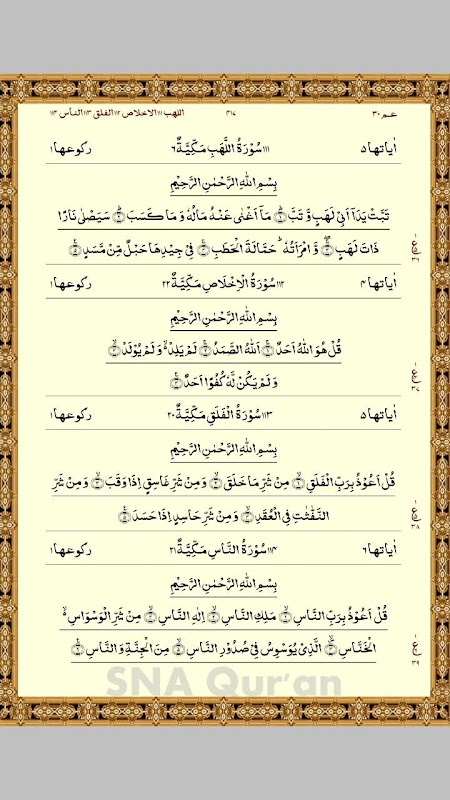 عـم ٣٠ ٤١٧ اللهب ١١١ الاخلاص ١١٢ الفلق ١١٣ الناس ١١٤
اٰیاتها ٥ ١١١ سُوْرَةُ اللَّهَبِ مَكِّيَّةٌ ٦ رکوعها ١
بِسْمِ اللهِ الرَّحْمٰنِ الرَّحِيْمِ
تَبَّتْ يَدَآ اَبِيْ لَهَبٍ وَّ تَبَّ ۝١ مَآ اَغْنٰى عَنْهُ مَالُهٗ وَ مَا كَسَبَ ۝٢ سَيَصْلٰى نَارًا
ذَاتَ لَهَبٍ ۝٣ وَّ امْرَاَتُهٗ ؕ حَمَّالَةَ الْحَطَبِ ۝٤ فِيْ جِيْدِهَا حَبْلٌ مِّنْ مَّسَدٍ ۝٥
ع ٣٦
اٰیاتها ٤ ١١٢ سُوْرَةُ الْاِخْلَاصِ مَكِّيَّةٌ ٢٢ رکوعها ١
بِسْمِ اللهِ الرَّحْمٰنِ الرَّحِيْمِ
قُلْ هُوَ اللهُ اَحَدٌ ۝١ اَللهُ الصَّمَدُ ۝٢ لَمْ يَلِدْ ۙ۬ وَ لَمْ يُوْلَدْ ۝٣
وَ لَمْ يَكُنْ لَّهٗ كُفُوًا اَحَدٌ ۝٤
ع ٣٧
اٰیاتها ٥ ١١٣ سُوْرَةُ الْفَلَقِ مَكِّيَّةٌ ٢٠ رکوعها ١
بِسْمِ اللهِ الرَّحْمٰنِ الرَّحِيْمِ
قُلْ اَعُوْذُ بِرَبِّ الْفَلَقِ ۝١ مِنْ شَرِّ مَا خَلَقَ ۝٢ وَ مِنْ شَرِّ غَاسِقٍ اِذَا وَقَبَ ۝٣ وَ مِنْ شَرِّ
النَّفّٰثٰتِ فِي الْعُقَدِ ۝٤ وَ مِنْ شَرِّ حَاسِدٍ اِذَا حَسَدَ ۝٥
ع ٣٨
اٰیاتها ٦ ١١٤ سُوْرَةُ النَّاسِ مَكِّيَّةٌ ٢١ رکوعها ١
بِسْمِ اللهِ الرَّحْمٰنِ الرَّحِيْمِ
قُلْ اَعُوْذُ بِرَبِّ النَّاسِ ۝١ مَلِكِ النَّاسِ ۝٢ اِلٰهِ النَّاسِ ۝٣ مِنْ شَرِّ الْوَسْوَاسِ ۙ۬
الْخَنَّاسِ ۝٤ الَّذِيْ يُوَسْوِسُ فِيْ صُدُوْرِ النَّاسِ ۝٥ مِنَ الْجِنَّةِ وَ النَّاسِ ۝٦
ع ٣٩
SNA Qur'an